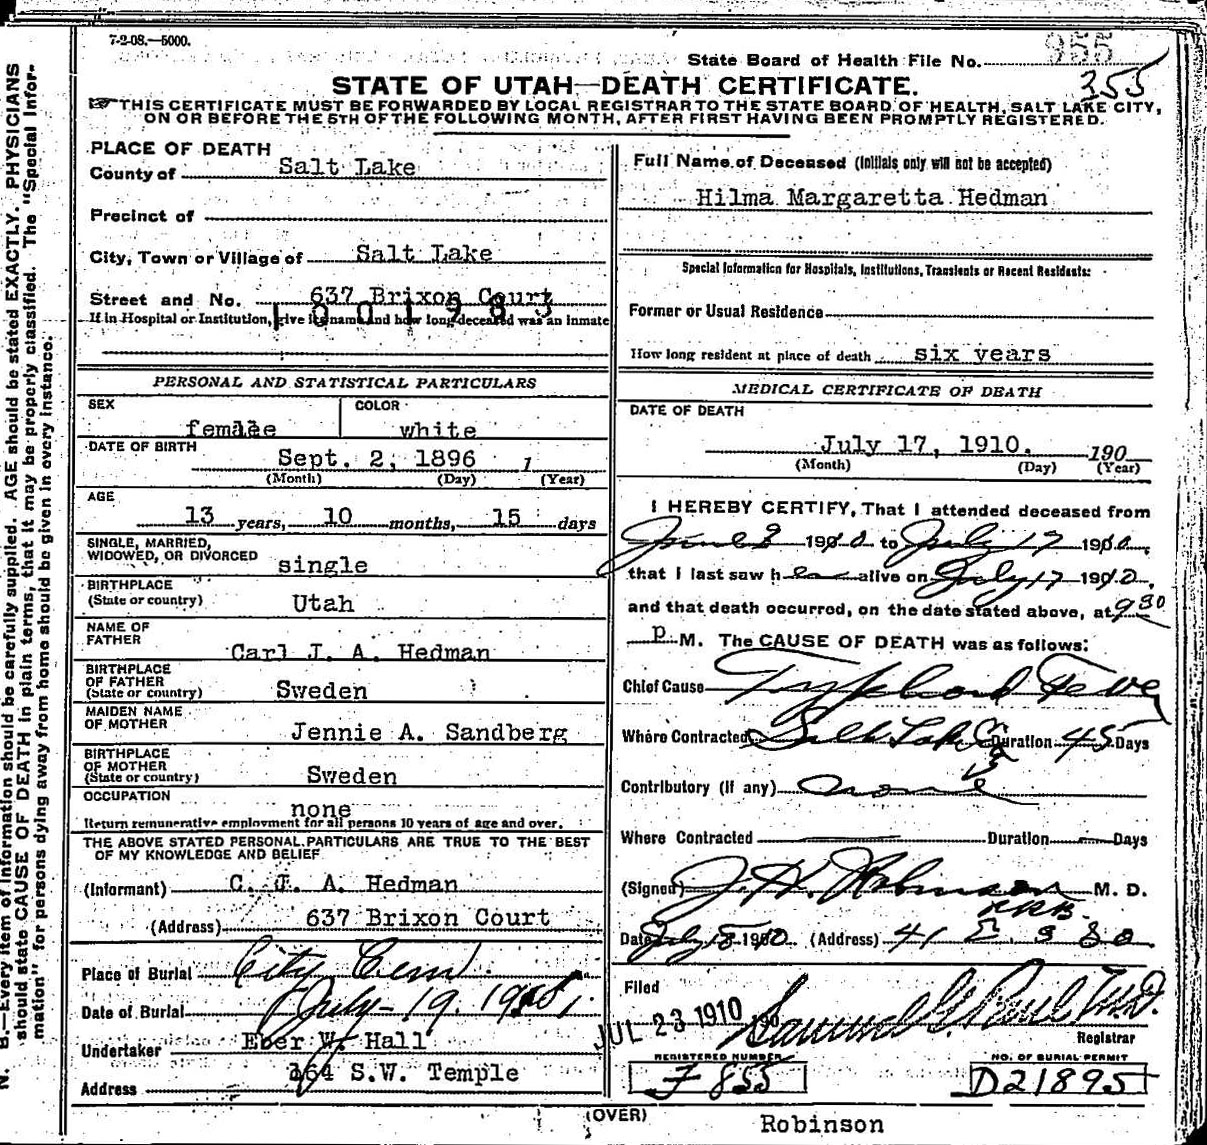 7-2-08.—5000.
State Board of Health File No. 955
355
STATE OF UTAH—DEATH CERTIFICATE.
THIS CERTIFICATE MUST BE FORWARDED BY LOCAL REGISTRAR TO THE STATE BOARD OF HEALTH, SALT LAKE CITY,
ON OR BEFORE THE 5TH OF THE FOLLOWING MONTH, AFTER FIRST HAVING BEEN PROMPTLY REGISTERED.
PLACE OF DEATH
County of Salt Lake
Precinct of
City, Town or Village of Salt Lake
Street and No. 637 Brixon Court
1001983
If in Hospital or Institution, give its name and how long deceased was an inmate
PERSONAL AND STATISTICAL PARTICULARS
SEX female
COLOR white
DATE OF BIRTH Sept. 2, 1896 1
(Month) (Day) (Year)
AGE 13 years, 10 months, 15 days
SINGLE, MARRIED,
WIDOWED, OR DIVORCED single
BIRTHPLACE
(State or country) Utah
NAME OF
FATHER Carl J. A. Hedman
BIRTHPLACE
OF FATHER
(State or country) Sweden
MAIDEN NAME
OF MOTHER Jennie A. Sandberg
BIRTHPLACE
OF MOTHER
(State or country) Sweden
OCCUPATION none
Return remunerative employment for all persons 10 years of age and over.
THE ABOVE STATED PERSONAL PARTICULARS ARE TRUE TO THE BEST
OF MY KNOWLEDGE AND BELIEF
(Informant) C. J. A. Hedman
(Address) 637 Brixon Court
Place of Burial City Cem.
Date of Burial July - 19. 191
Undertaker Eber W. Hall
Address 164 S.W. Temple
Full Name of Deceased (Initials only will not be accepted)
Hilma Margaretta Hedman
Special Information for Hospitals, Institutions, Transients or Recent Residents:
Former or Usual Residence
How long resident at place of death six years
MEDICAL CERTIFICATE OF DEATH
DATE OF DEATH
July 17, 1910. 190
(Month) (Day) (Year)
I HEREBY CERTIFY, That I attended deceased from
June 3 1910 to July 17 1910,
that I last saw her alive on July 17 1910,
and that death occurred, on the date stated above, at 9 30
P M. The CAUSE OF DEATH was as follows:
Chief Cause Typhoid Fever
Where Contracted Salt Lake City Duration 45 Days
Contributory (if any) none
Where Contracted Duration Days
(Signed) J. H. Robinson M. D.
Date July 18 1910 (Address) 41 E. 3 So
Filed JUL 23 1910 190
Samuel G. Paul M.D.
Registrar
REGISTERED NUMBER
F 855
NO. OF BURIAL PERMIT
D21895
(OVER)
Robinson
N. B.—Every item of information should be carefully supplied. AGE should be stated EXACTLY. PHYSICIANS
should state CAUSE OF DEATH in plain terms, that it may be properly classified. The "Special Infor-
mation" for persons dying away from home should be given in every instance.